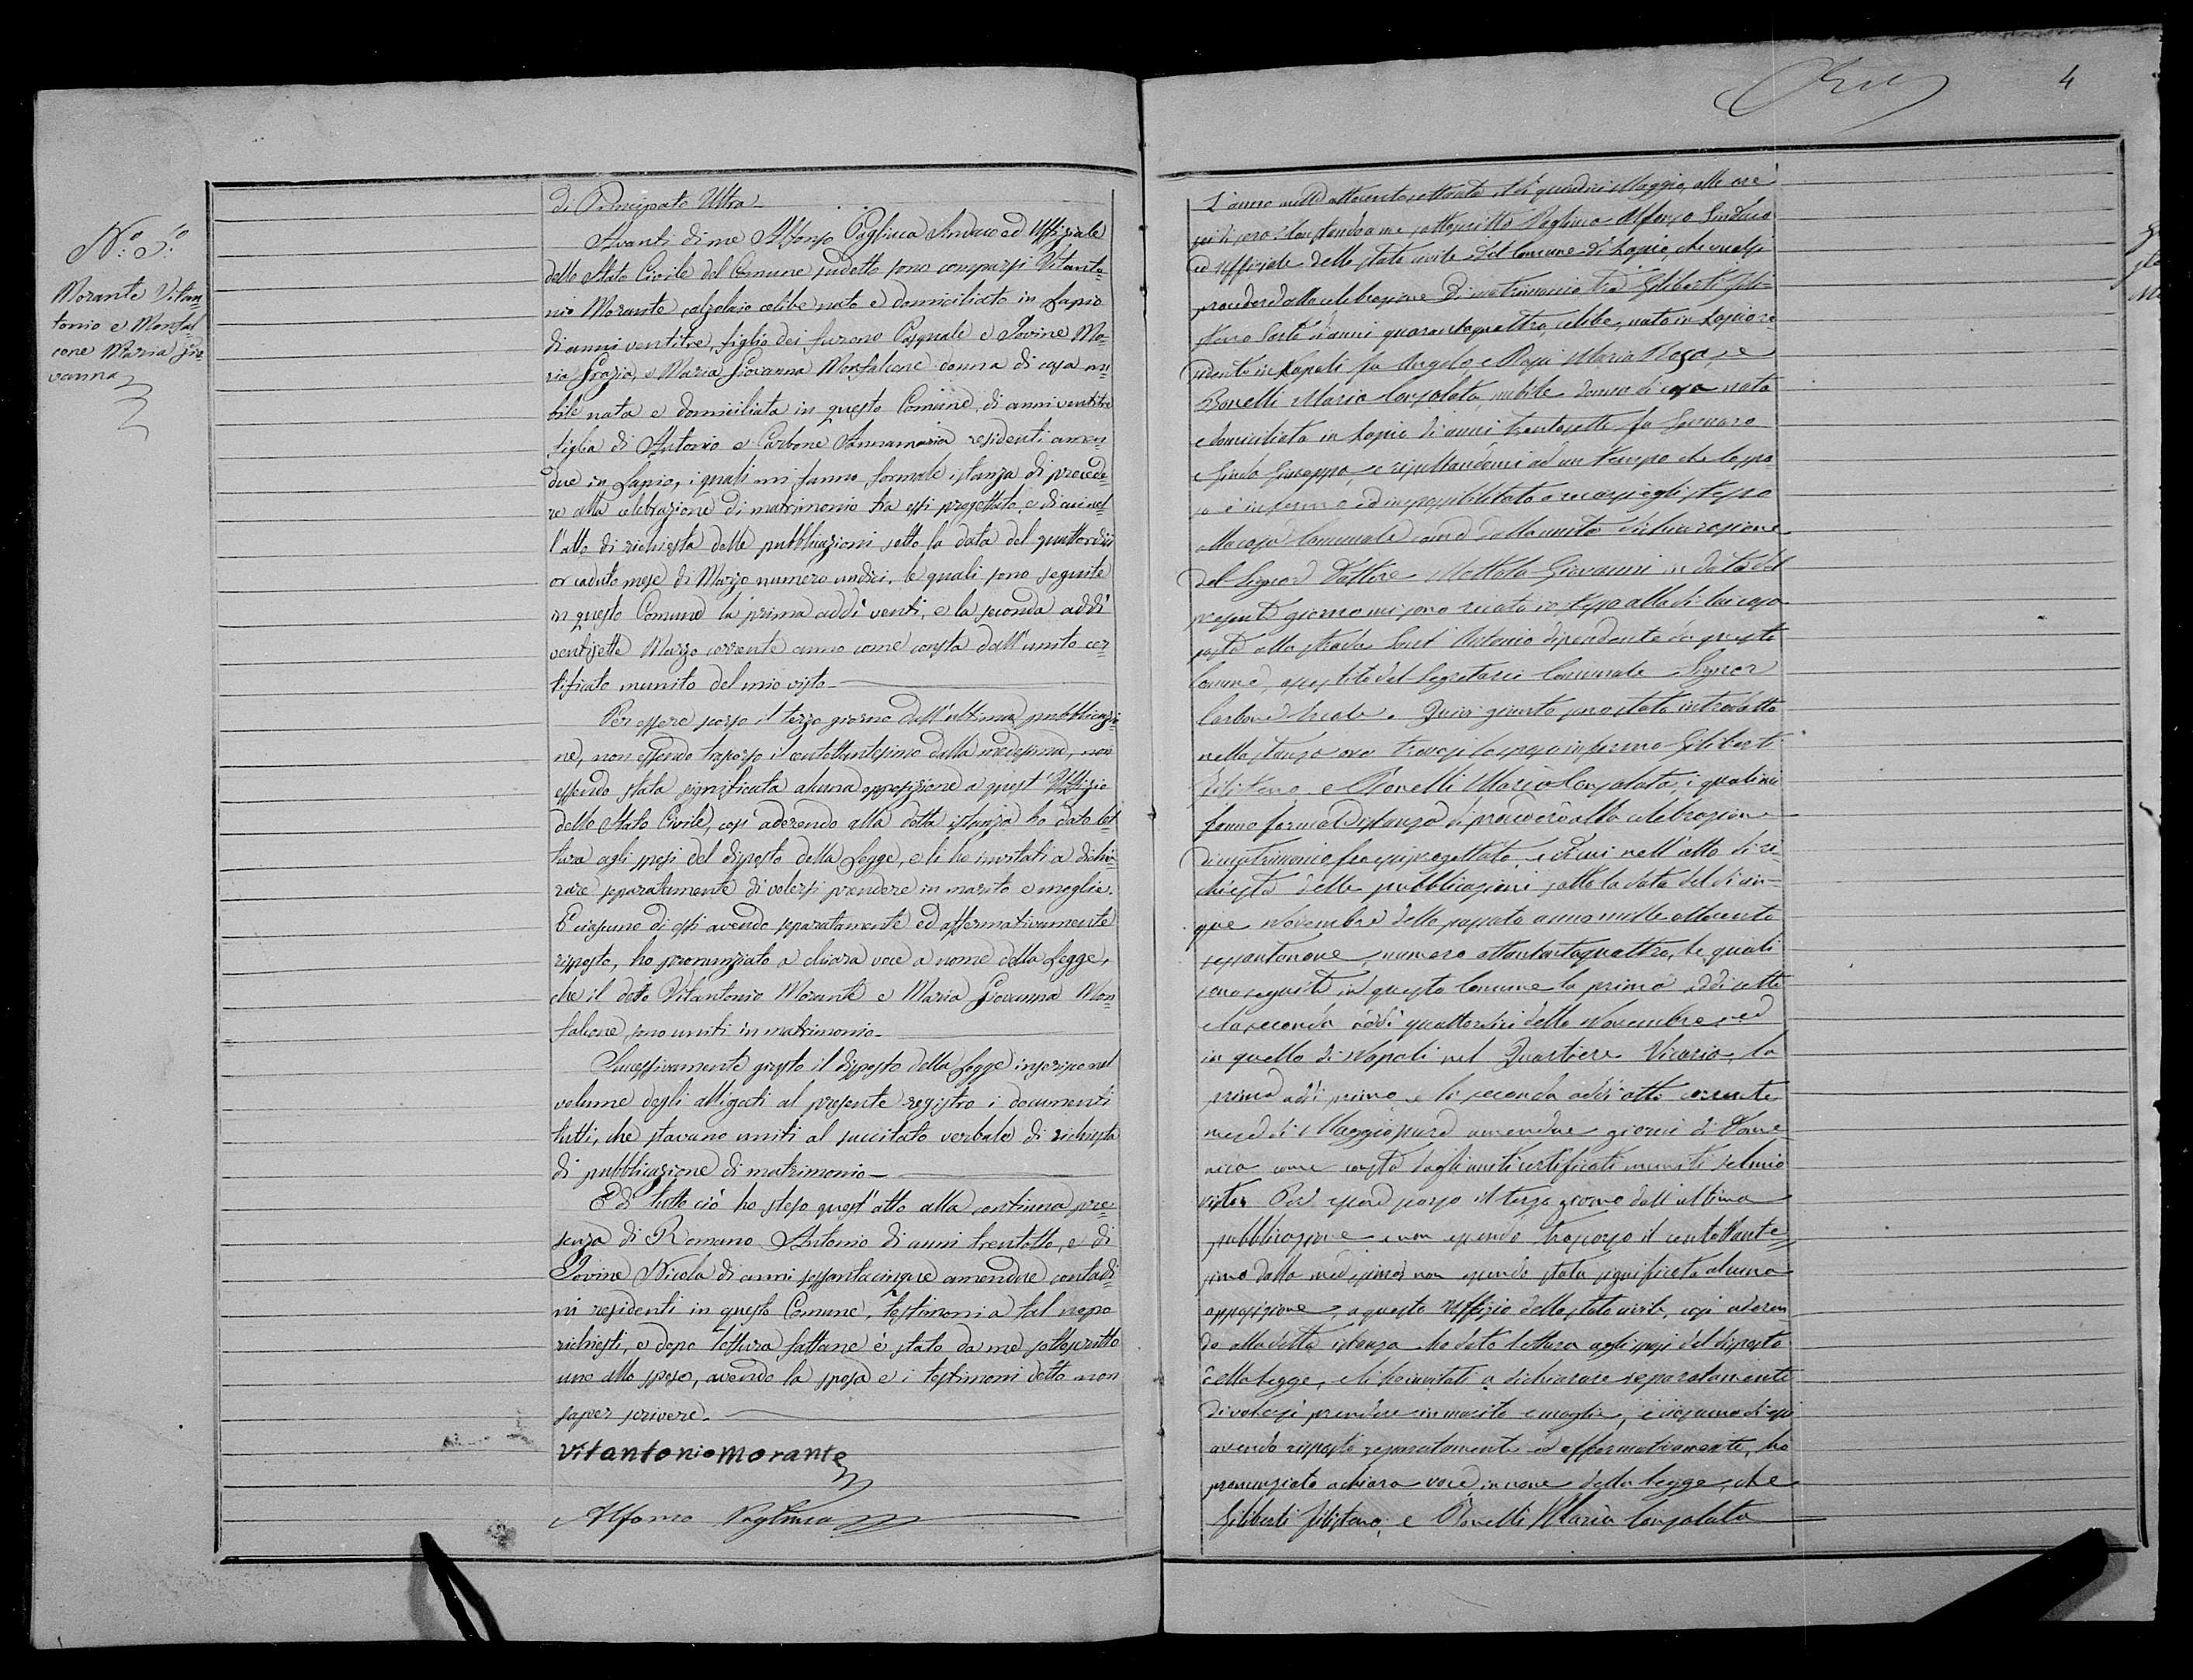 N.o 5.o
Morante Vitan-
tonio e Monfal-
cone Maria Gio-
vanna
di Principato Ultra
Avanti di me Alfonso Pagliuca Sindaco ed Uffiziale
dello Stato Civile del Comune sudetto sono comparsi Vitanto-
nio Morante calzolaio celibe nato e domiciliato in Lapio
di anni ventitre, figlio dei furono Pasquale e Iovine Ma-
ria Grazia, e Maria Giovanna Monfalcone donna di casa nu-
bile nata e domiciliata in questo Comune, di anni ventitre
figlia di Antonio e Carbone Annamaria residenti amen-
due in Lapio, i quali mi fanno formale istanza di procede-
re alla celebrazione di matrimonio tra essi progettato, e di cui nel-
l'atto di richiesta delle pubblicazioni sotto la data del quattordici
or caduto mese di Marzo numero undici, le quali sono seguite
in questo Comune la prima addì venti, e la seconda addì
ventisette Marzo corrente anno come consta dall'unito cer-
tificato munito del mio visto
Per essere scorso il terzo giorno dall'ultima pubblicazio-
ne, non essendo trascorso il centottantesimo dalla medesima, non
essendo stata significata alcuna opposizione a quest'Uffizio
dello Stato Civile, così aderendo alla detta istanza ho dato let-
tura agli sposi del disposto della Legge, e li ho invitati a dichia-
rare separatamente di volersi prendere in marito e moglie.
E ciascuno di essi avendo separatamente ed affermativamente
risposto, ho pronunziato a chiara voce a nome della Legge,
che il detto Vitantonio Morante e Maria Giovanna Mon-
falcone sono uniti in matrimonio
Successivamente giusto il disposto della Legge inserisco nel
volume degli alligati al presente registro i documenti
tutti, che stavano uniti al succitato verbale di richiesta
di pubblicazione di matrimonio
E di tutto ciò ho steso quest'atto alla continua pre-
senza di Romano Antonio di anni trentotto, e di
Iovine Nicola di anni sessantacinque amendue contadi-
ni residenti in questo Comune, testimoni a tal uopo
richiesti, e dopo lettura fattane è stato da me sottoscritto
uno allo sposo, avendo la sposa e i testimoni detto non
saper scrivere.
Vitantonio Morante
Alfonso Pagliuca
4
L'anno mille ottocento settanta il dì quindici Maggio, alle ore
Constando a me sottoscritto Pagliuca Alfonso Sindaco
ed Uffiziale dello stato civile del Comune di Lapio, che
procedere alla celebrazione di matrimonio tra Giliberti Fili-
steno Sarto d'anni quarantaquattro, celibe, nato in Lapio re-
sidente in Napoli fu Angelo e Maria Rosa, e
Bonelli Maria Consolata, nubile donna di casa nata
e domiciliata in Lapio di anni trentasette fu Gennaro
e Giuseppa, e risultandomi ad un tempo che lo spo-
so è infermo ed impossibilitato a recarsi egli stesso
alla casa Comunale come dalla unita dichiarazione
del Signor Dottore Mottola Giovanni in data del
presente giorno mi sono recato io stesso alla di lui casa
posta alla strada Sant'Antonio dipendente da questo
Comune, assistito del Segretario Comunale Signor
Carbone Quivi giunto sono stato introdotto
nella stanza ove trovasi lo sposo infermo Giliberti
Filisteno e Bonelli Maria Consolata, i quali mi
fanno formale istanza di procedere alla celebrazione
di matrimonio fra essi progettato, e di cui nell'atto di ri-
chiesta delle pubblicazioni sotto la data del dì cin-
que Novembre dello passato anno mille ottocento
sessantanove, numero ottantaquattro, le quali
sono seguite in questo Comune la prima addì sette
e la seconda addì quattordici detto Novembre, ed
in quello di Napoli nel Quartiere Vicaria, la
prima addì primo e la seconda addì otto corrente
mese di Maggio pure amendue giorni di Dome-
nica come consta dagli uniti certificati muniti del mio
visto. Per essere scorso il terzo giorno dall'ultima
pubblicazione e non essendo trascorso il centottante-
simo dalla medesima, non essendo stata significata alcuna
opposizione, a questo Uffizio dello stato civile, così aderen-
do alla detta istanza ho dato lettura agli sposi del disposto
della Legge, e li ho invitati a dichiarare separatamente
di volersi prendere in marito e moglie, e ciascuno di essi
avendo risposto separatamente ed affermativamente, ho
pronunziato a chiara voce, in nome della Legge, che
Giliberti Filisteno, e Bonelli Maria Consolata